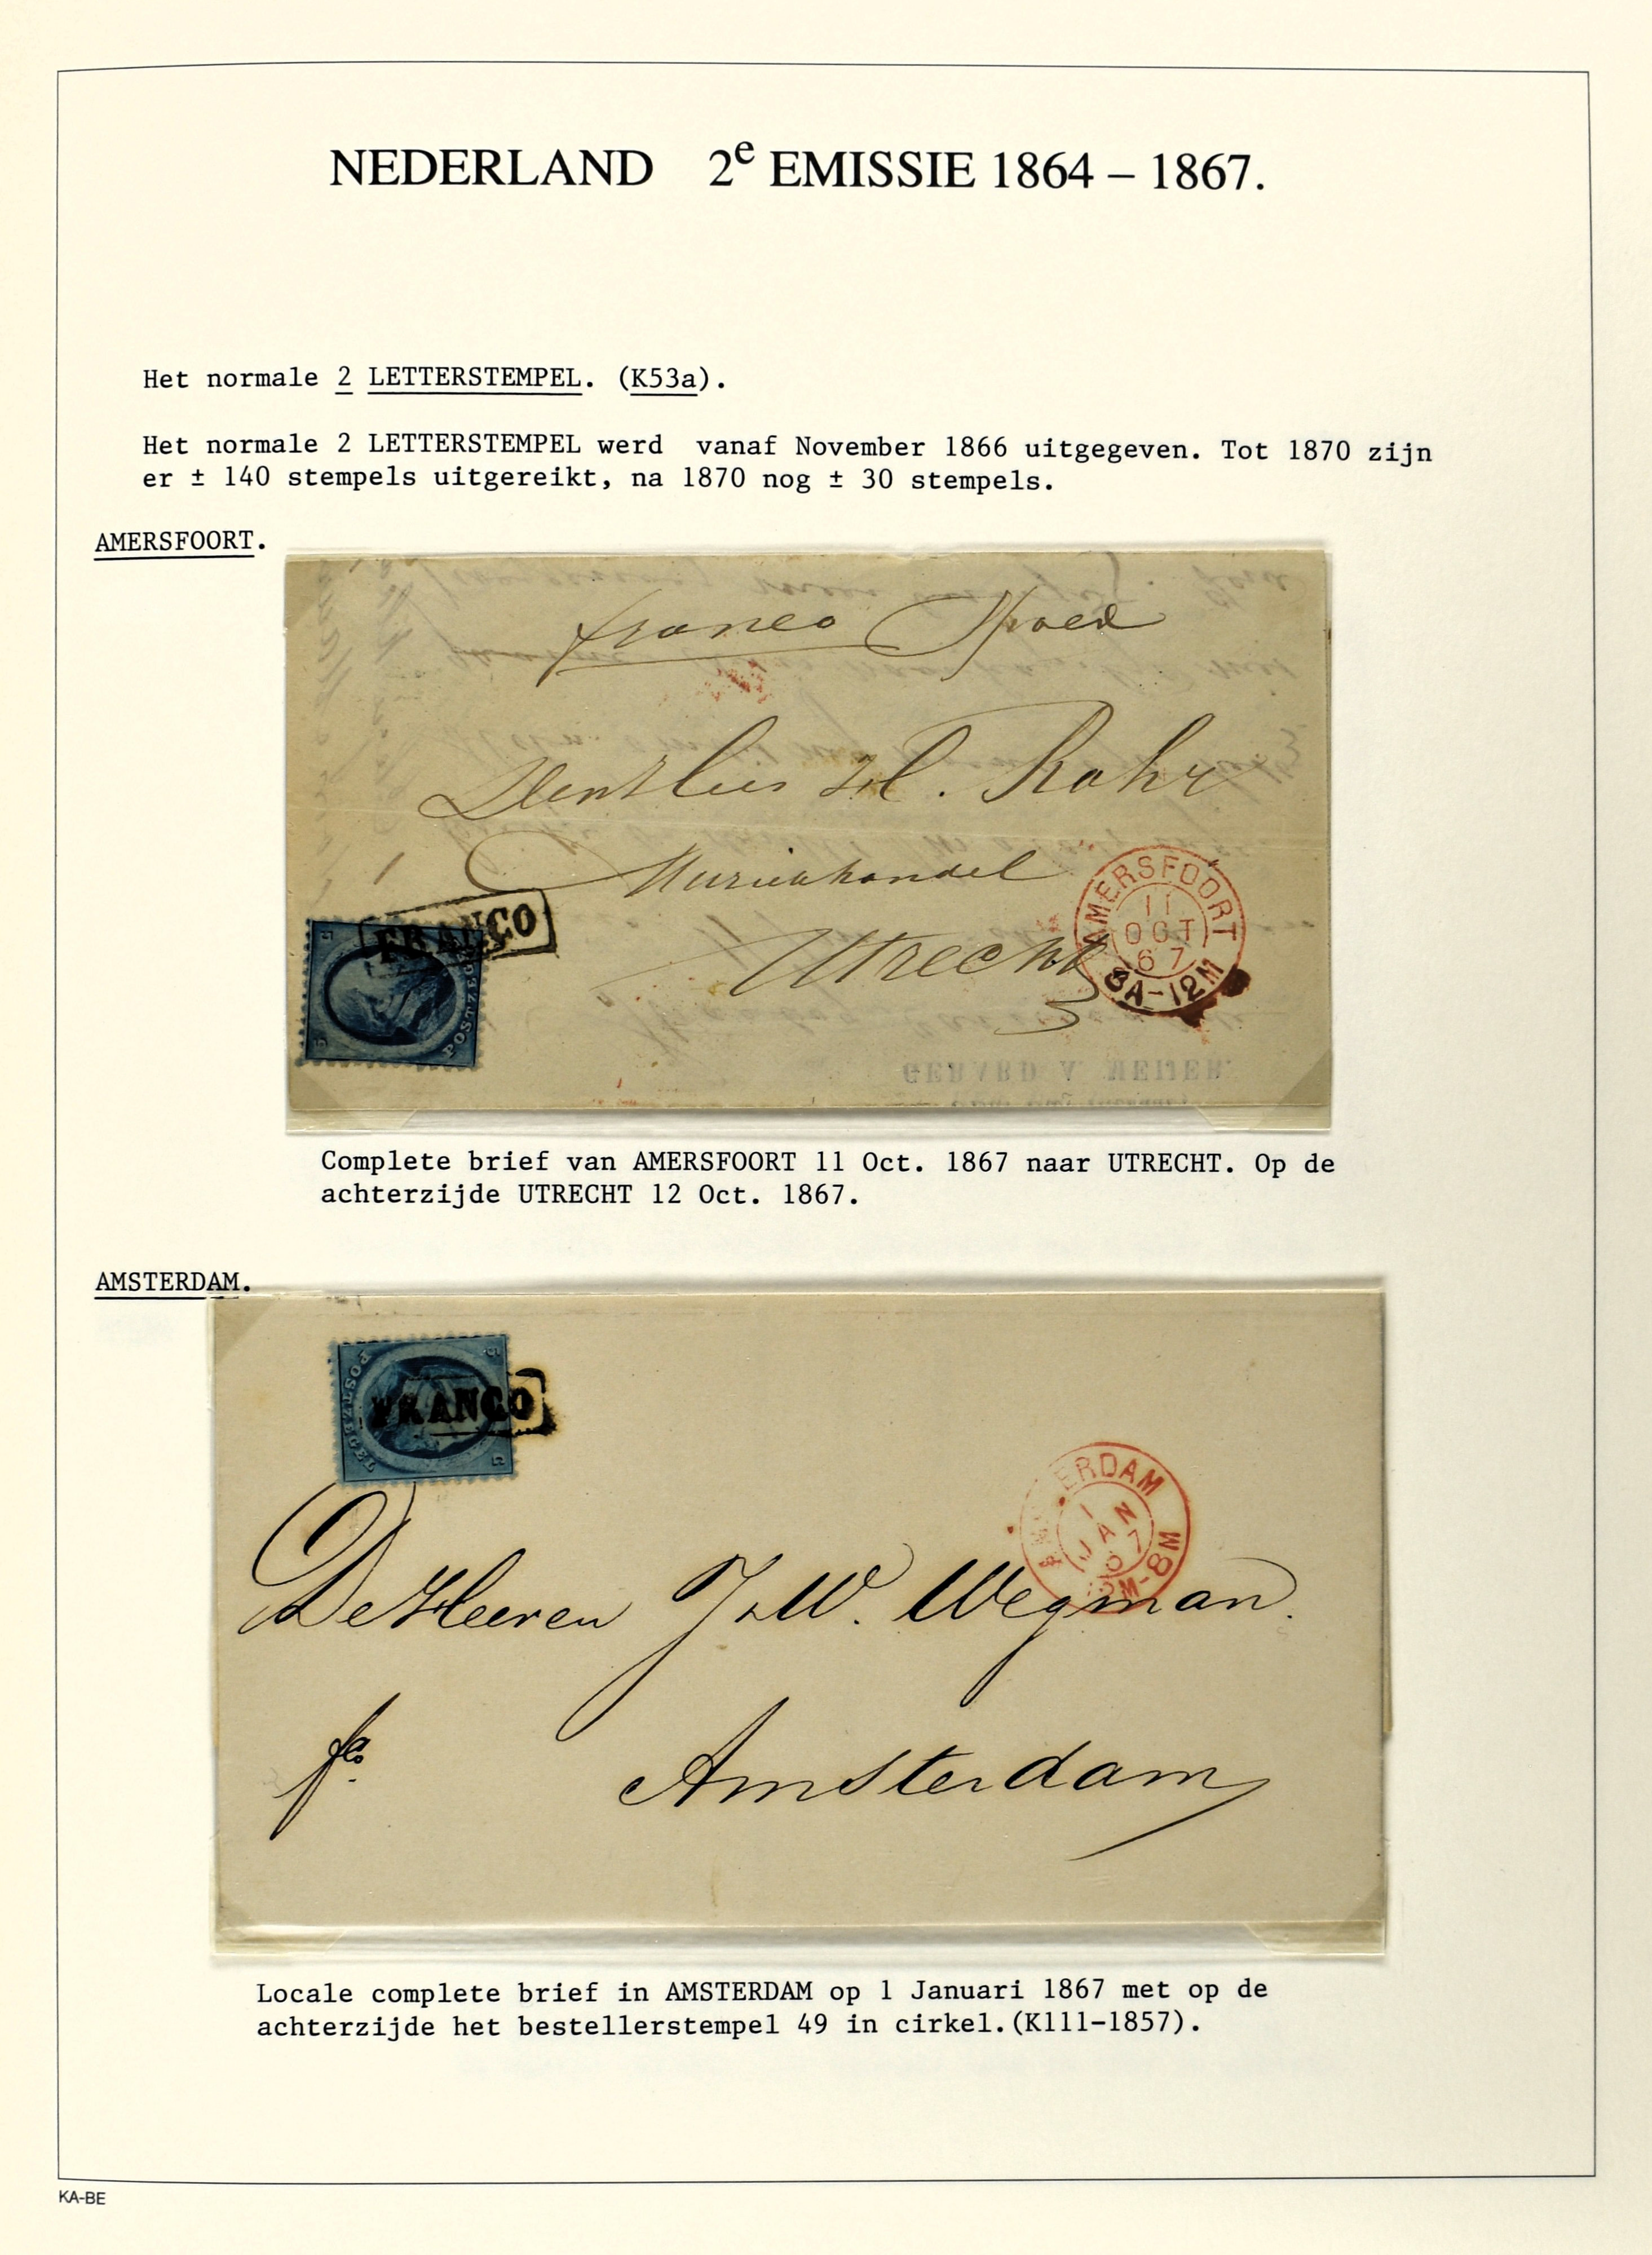 NEDERLAND 2e EMISSIE 1864 – 1867.
Het normale 2 LETTERSTEMPEL. (K53a).
Het normale 2 LETTERSTEMPEL werd vanaf November 1866 uitgegeven. Tot 1870 zijn
er ± 140 stempels uitgereikt, na 1870 nog ± 30 stempels.
AMERSFOORT.
franco Spoed
H. Rahr
Muziekhandel
FRANCO
POSTZEGEL
5
Utrecht
AMERSFOORT
11
OCT
67
8A-12M
GERARD V. MEIJER
Complete brief van AMERSFOORT 11 Oct. 1867 naar UTRECHT. Op de
achterzijde UTRECHT 12 Oct. 1867.
AMSTERDAM.
POSTZEGEL
5
5
FRANCO
AMSTERDAM
1
JAN
67
12M-8M
De Heeren J & W. Wegman.
fco.
Amsterdam
Locale complete brief in AMSTERDAM op 1 Januari 1867 met op de
achterzijde het bestellerstempel 49 in cirkel.(K111-1857).
KA-BE